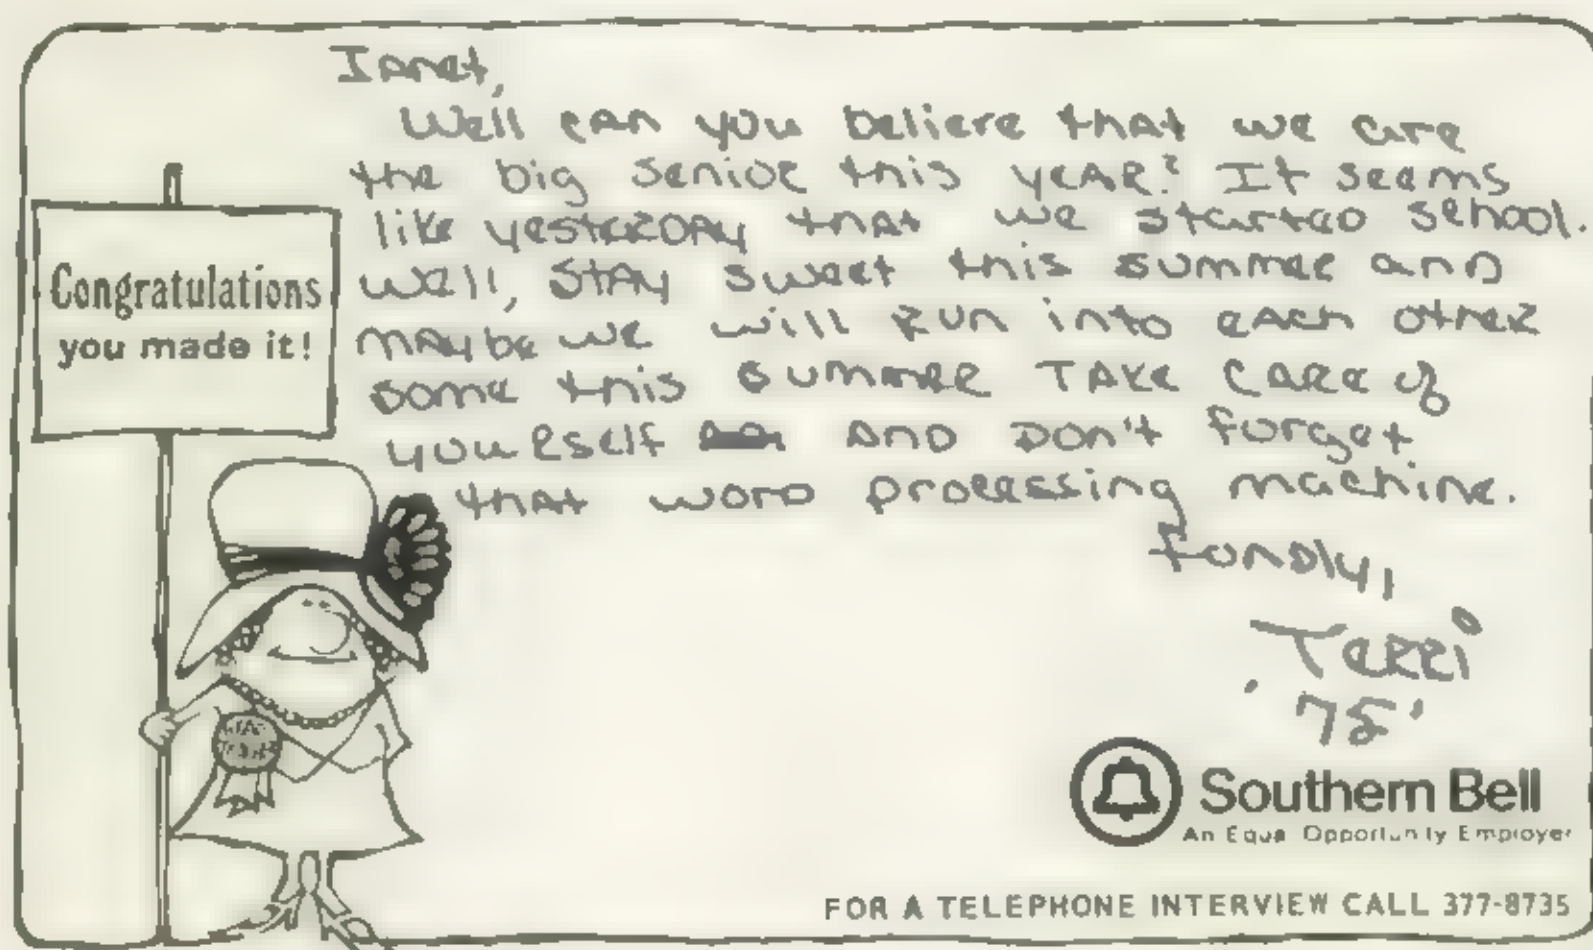 Janet,
Well can you believe that we are
the big senior this year? It seems
like yesterday that we started school.
Well, stay sweet this summer and
maybe we will run into each other
some this summer Take care of
yourself and don't forget
that word processing machine.
Fondly,
Terri
'75'
Congratulations
you made it!
Southern Bell
An Equal Opportunity Employer
FOR A TELEPHONE INTERVIEW CALL 377-8735